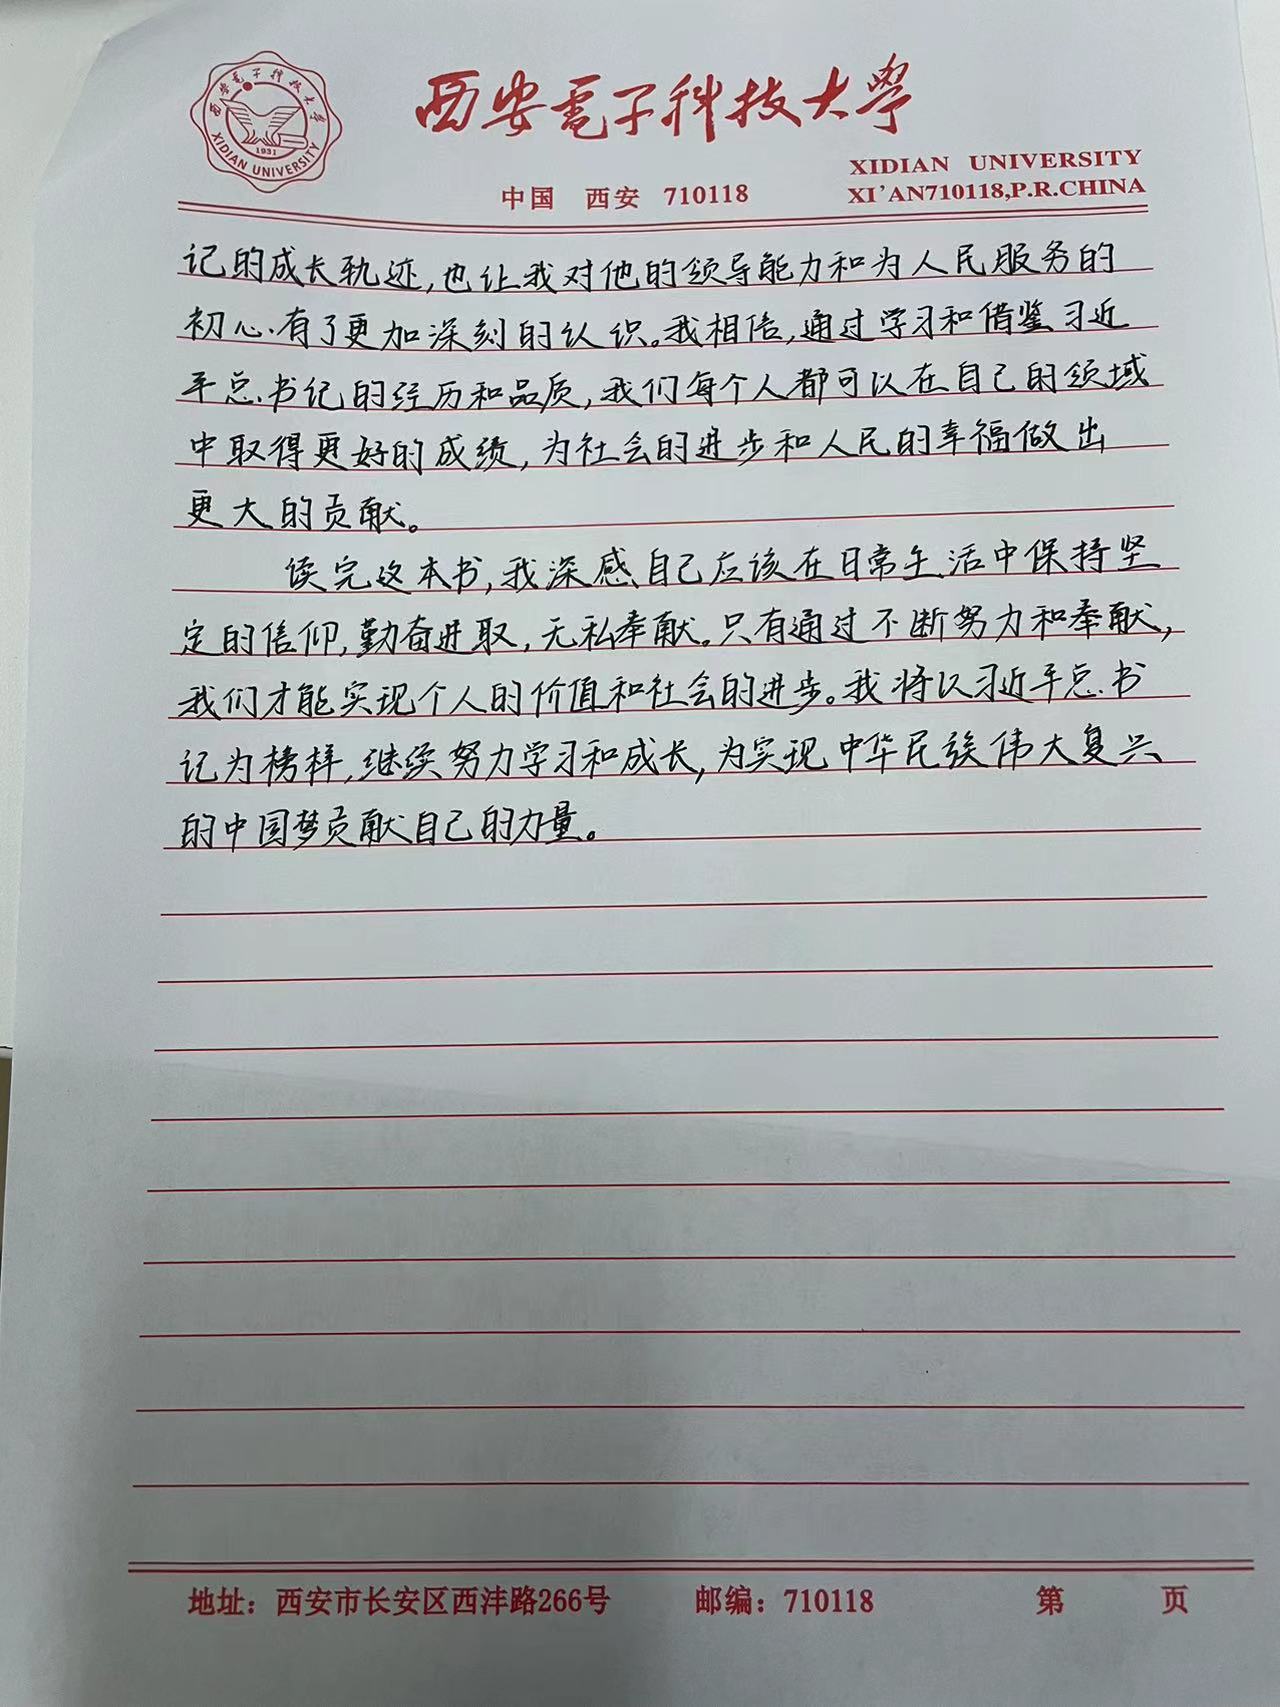 西安電子科技大學
XIDIAN UNIVERSITY
1931
西安電子科技大學
中国 西安 710118
XIDIAN UNIVERSITY
XI'AN710118,P.R.CHINA
记的成长轨迹,也让我对他的领导能力和为人民服务的
初心有了更加深刻的认识。我相信,通过学习和借鉴习近
平总书记的经历和品质,我们每个人都可以在自己的领域
中取得更好的成绩,为社会的进步和人民的幸福做出
更大的贡献。
读完这本书,我深感自己应该在日常生活中保持坚
定的信仰,勤奋进取,无私奉献。只有通过不断努力和奉献,
我们才能实现个人的价值和社会的进步。我将以习近平总书
记为榜样,继续努力学习和成长,为实现中华民族伟大复兴
的中国梦贡献自己的力量。
地址：西安市长安区西沣路266号 邮编：710118 第 页